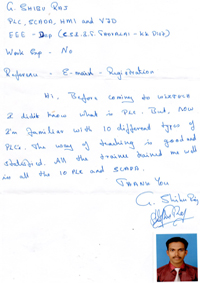 G. SHIBU RAJ
PLC, SCADA, HMI and VFD
EEE - Dep (C.S.I.
Work Exp - No
Reference - E-mail - Registration
Hi, Before coming to
I didn't know what is PLC. But, NOW
I'm familiar with 10 different types of
PLCs. The way of teaching is good and
satisfied. All the trainer trained me well
in all the 10 PLC and SCADA.
THANK YOU
G. Shibu Raj